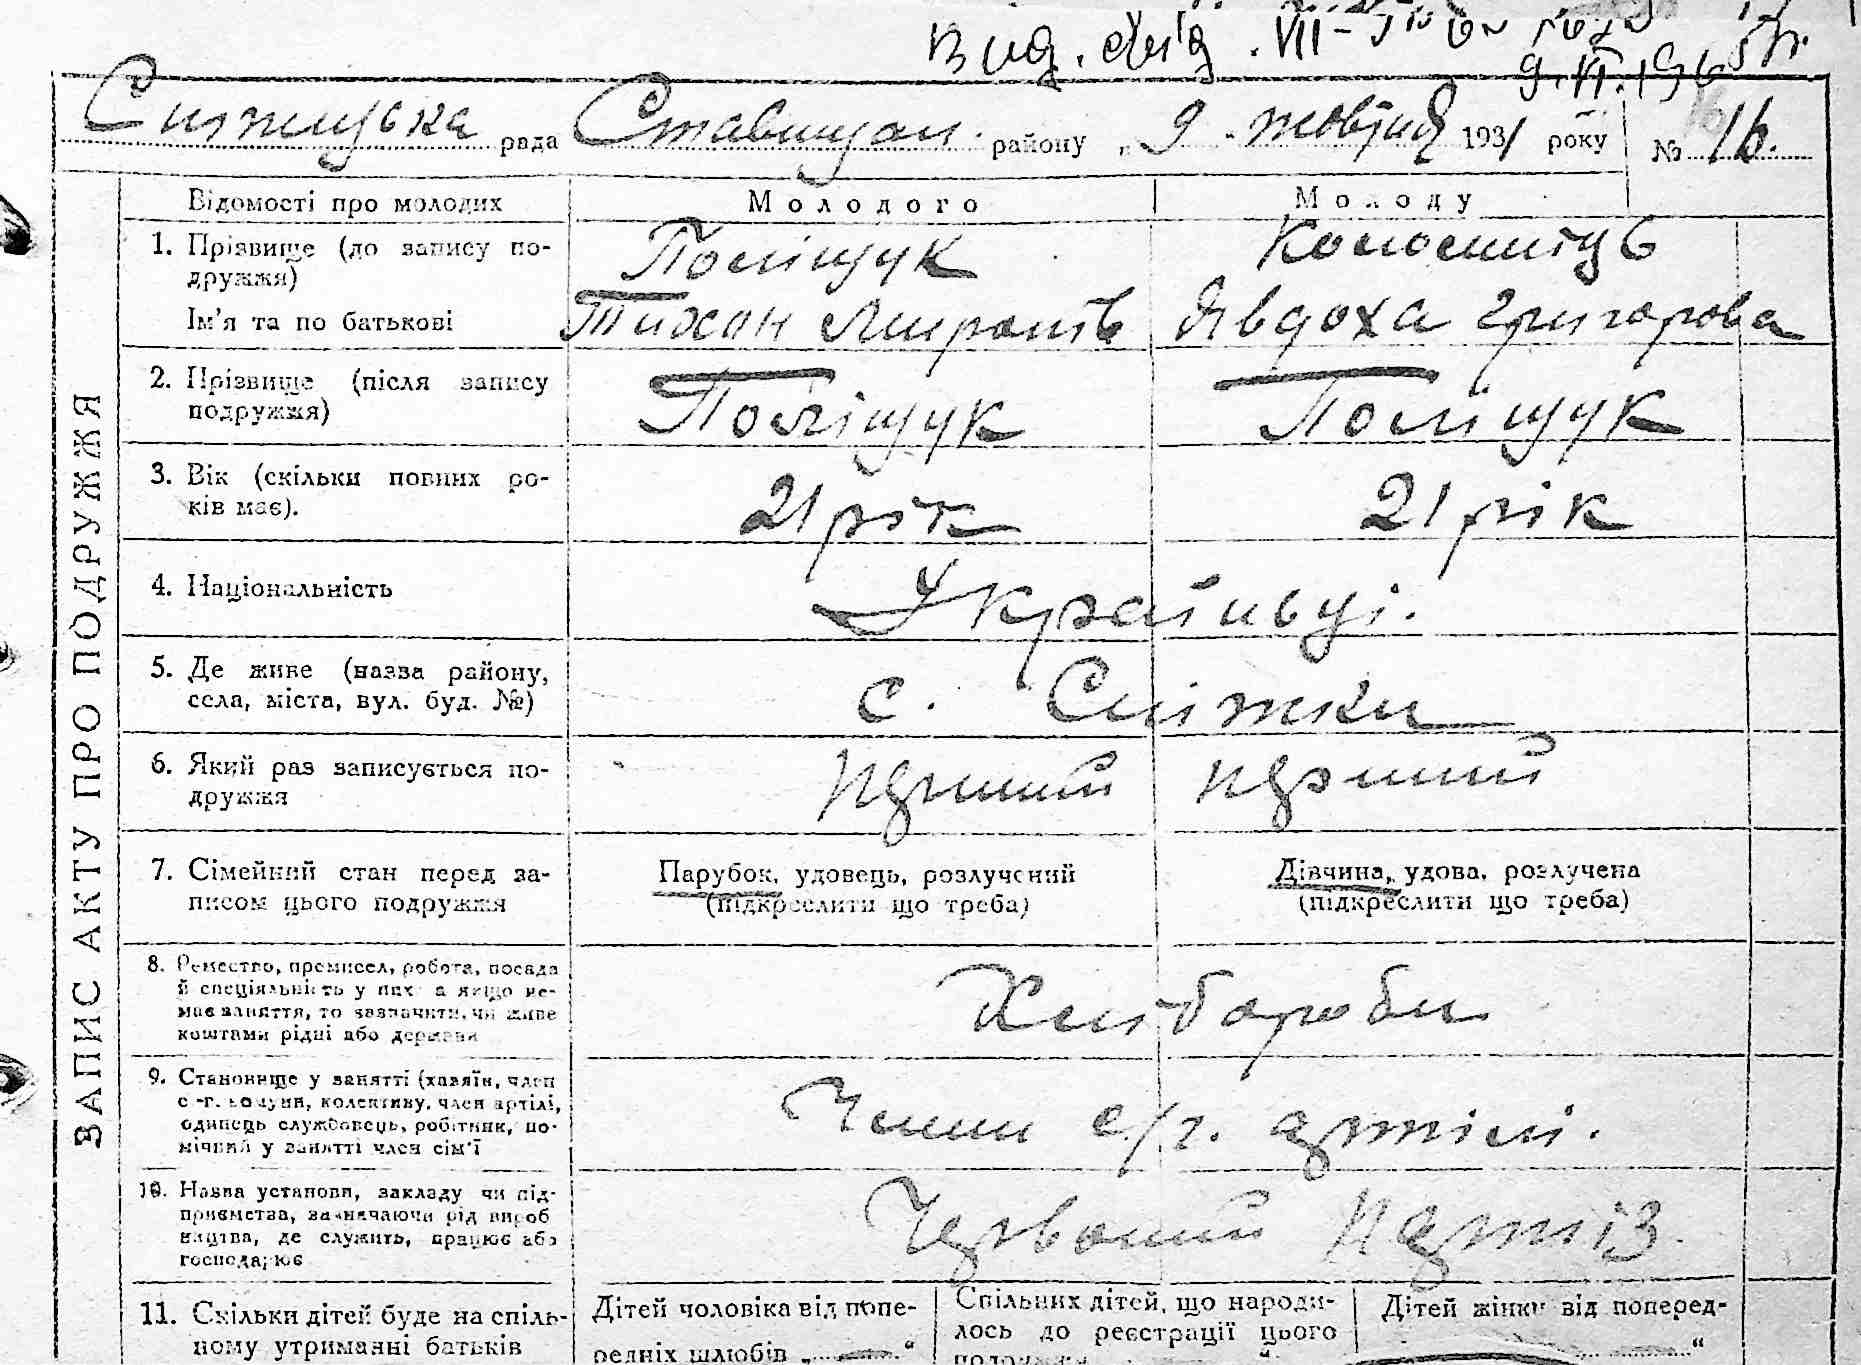 Вид. свід. VII-
9.VI.196
рада Ставищан. району „ 9 . жовтня 1931 року № 16.
ЗАПИС АКТУ ПРО ПОДРУЖЖЯ
Відомості про молодих Молодого Молоду
1. Прізвище (до запису по- Поліщук
дружжя)
Ім'я та по батькові Тихон Миронів Явдоха Григорова
2. Прізвище (після запису
подружжя) Поліщук Поліщук
3. Вік (скільки повних ро- 21 рік 21 рік
ків має).
4. Національність Українці.
5. Де живе (назва району,
села, міста, вул. буд. №) с. Сніжки
6. Який раз записується по- перший перший
дружжя
7. Сімейний стан перед за- Парубок, удовець, розлучений Дівчина, удова, розлучена
писом цього подружжя (підкреслити що треба) (підкреслити що треба)
8. Ремество, промисел, робота, посада
й спеціяльність у них а якщо не- Хлібороби
має заняття, то зазначити, чи живе
коштами рідні або держави
9. Становище у занятті (хазяїн, член
с.-г. комуни, колективу, член артілі, Члени с/г. артілі.
одинець службовець, робітник, по-
мічний у занятті член сім'ї
10. Назва установи, закладу чи під-
приємства, зазначаючи рід вироб Червоний Партіз
ництва, де служить, працює або
господарює
11. Скільки дітей буде на спіль- Дітей чоловіка від попе- Спільних дітей, що народи- Дітей жінки від поперед-
ному утриманні батьків редніх шлюбів „ “ лось до реєстрації цього “